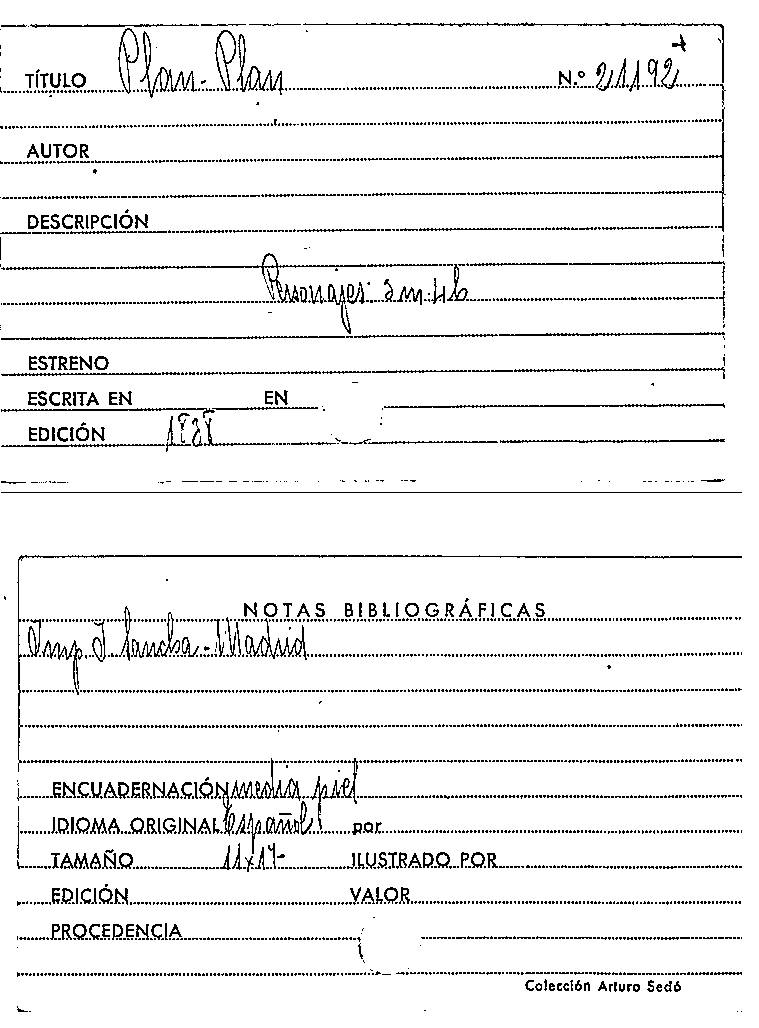 TÍTULO Plan-Plan N.º 21192
AUTOR
DESCRIPCIÓN
Personajes: 3 m. 4 h
ESTRENO
ESCRITA EN EN
EDICIÓN 1828
NOTAS BIBLIOGRÁFICAS
Imp. I. Sancha - Madrid
ENCUADERNACIÓN media piel
IDIOMA ORIGINAL Español por
TAMAÑO 11x17 ILUSTRADO POR
EDICIÓN VALOR
PROCEDENCIA
Colección Arturo Sedó